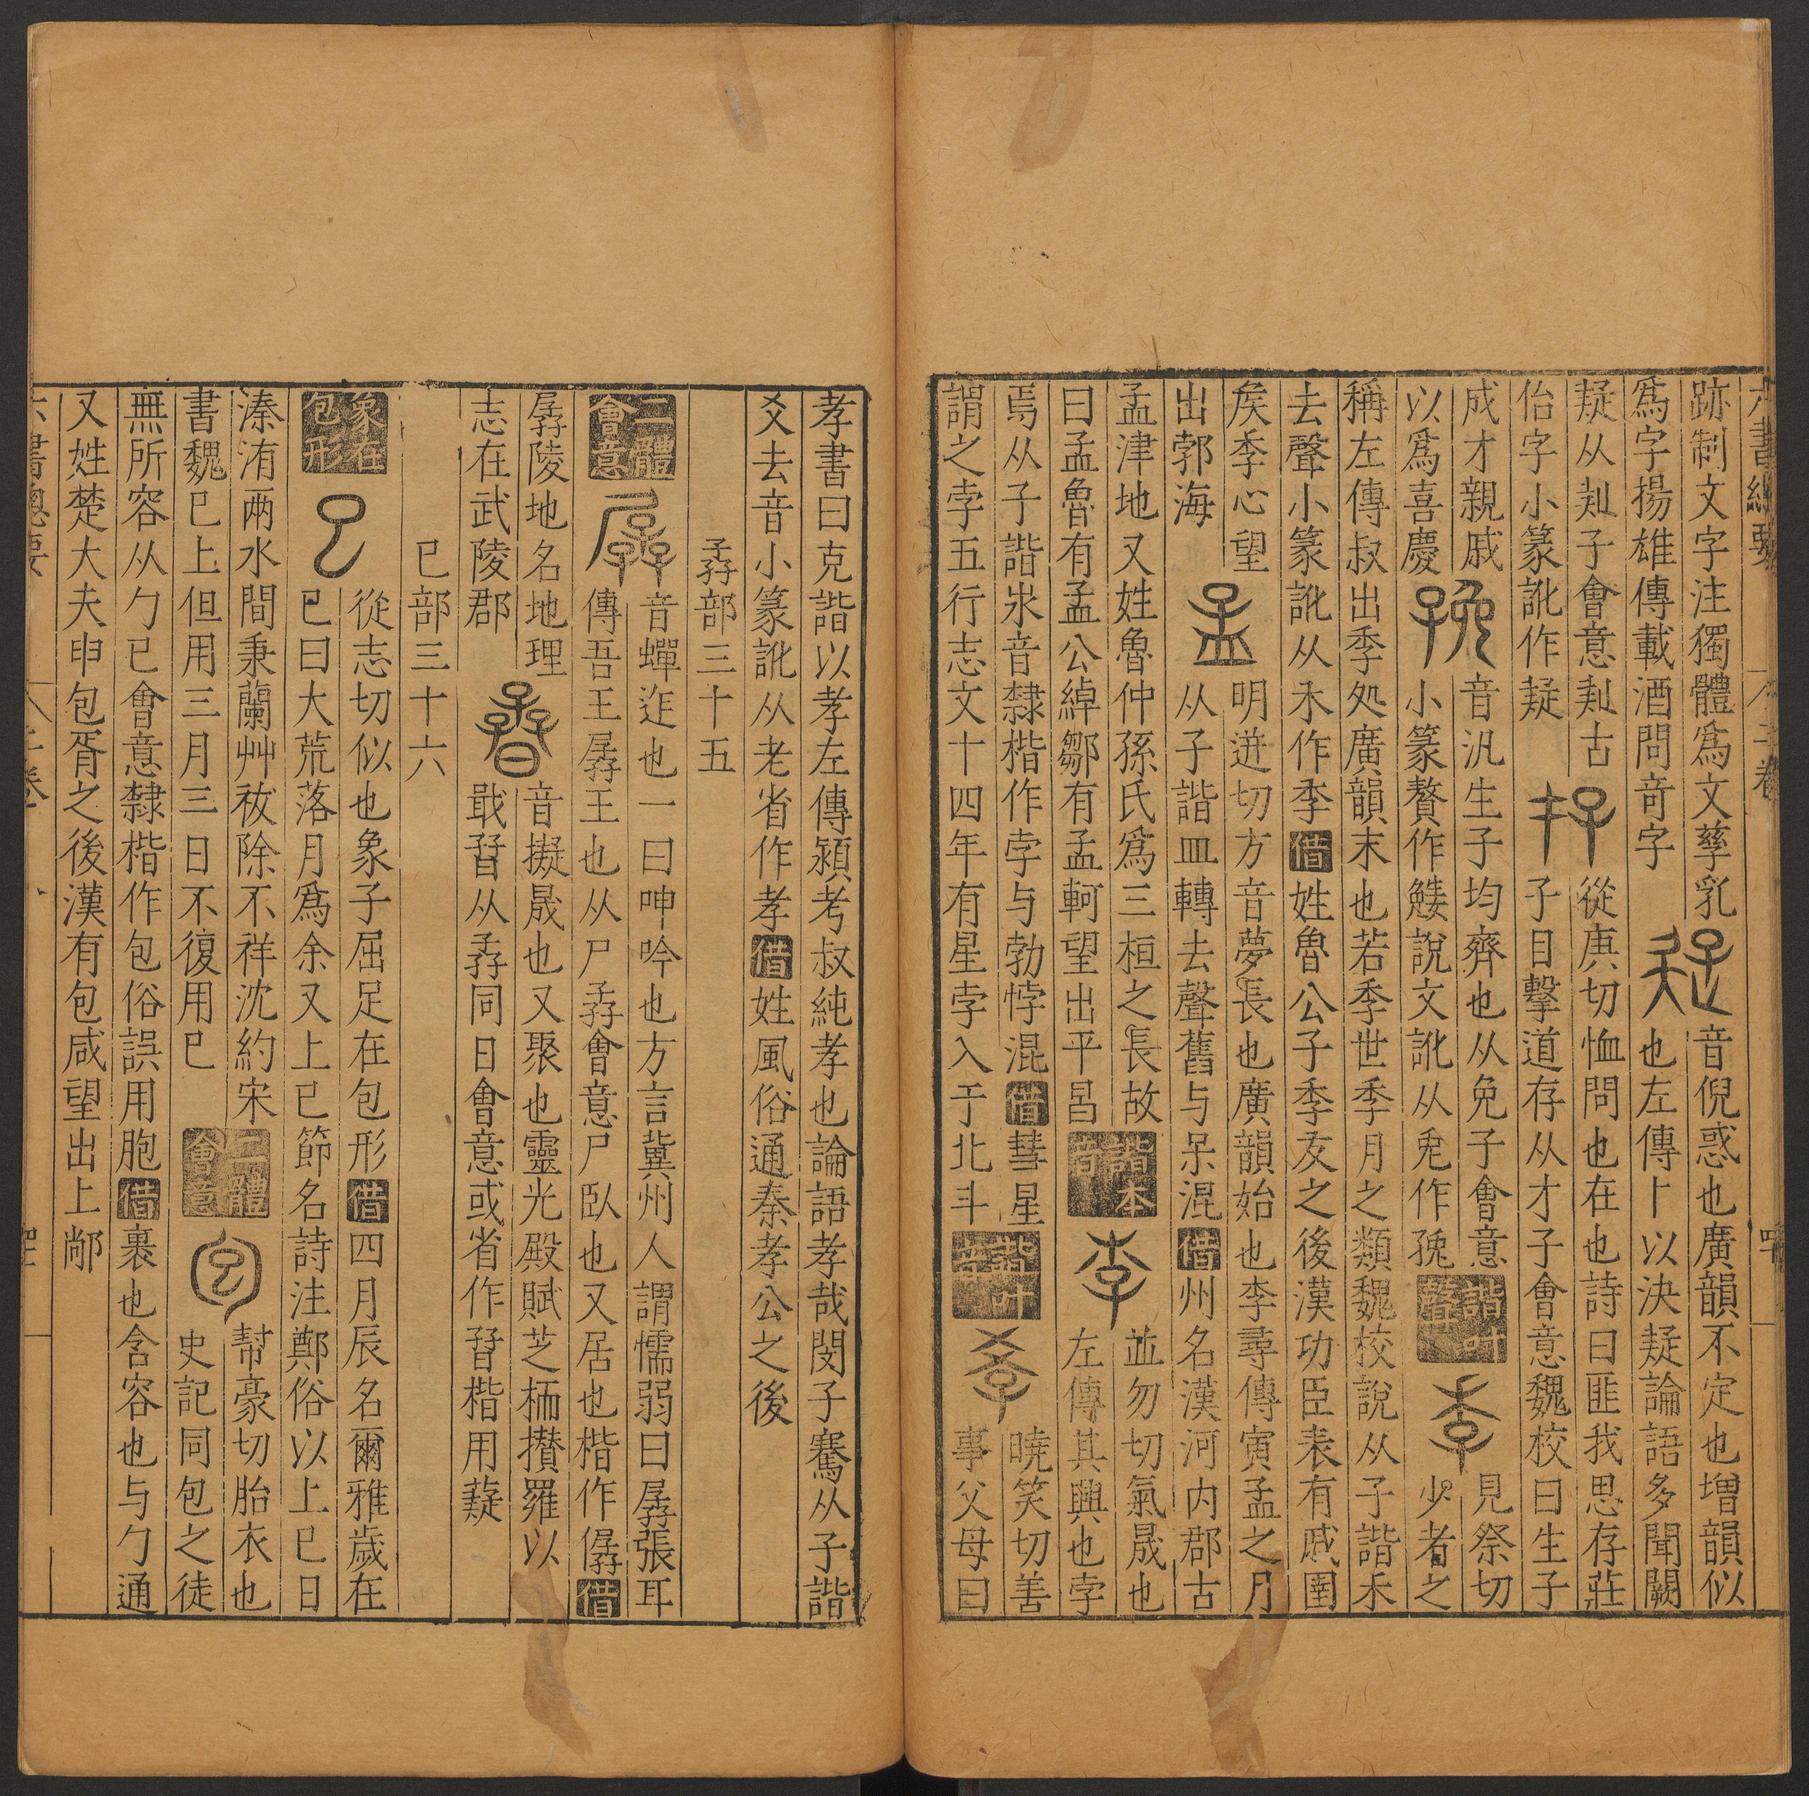 六書總要
二卷
跡制文字注獨體為文孳乳
音倪惑也廣韻不定也增韻似
為字揚雄傳載酒問奇字
也左傳卜以決疑論語多聞闕
疑从矣子會意矣古
從庚切恤問也在也詩曰匪我思存莊
佁字小篆訛作疑
子目擊道存从才子會意魏校曰生子
成才親戚
音汎生子均齊也从免子會意
見祭切
以為喜慶
小篆贅作𩸞說文訛从兔作㝃
諧叶聲
少者之
稱左傳叔出季処廣韻末也若季世季月之類魏校說从子諧禾
去聲小篆訛从禾作季借姓魯公子季友之後漢功臣表有戚圉
矦季心望
明迸切方音夢長也廣韻始也李尋傳寅孟之月
出郭海
从子諧皿轉去聲舊与呆混借州名漢河内郡古
孟津地又姓魯仲孫氏為三桓之長故
諧本音
並勿切氣晟也
曰孟魯有孟公綽鄒有孟軻望出平昌
左傳其興也孛
焉从子諧𣎵音隸楷作孛与勃悖混借彗星
諧叶音
曉笑切善
謂之孛五行志文十四年有星孛入于北斗
事父母曰
孝書曰克諧以孝左傳潁考叔純孝也論語孝哉閔子騫从子諧
爻去音小篆訛从老省作孝借姓風俗通秦孝公之後
孨部三十五
二體會意
音蟬迮也一曰呻吟也方言冀州人謂懦弱曰孱張耳
傳吾王孱王也从尸孨會意尸臥也又居也楷作僝借
孱陵地名地理
音擬晟也又聚也靈光殿賦芝栭攢羅以
志在武陵郡
戢孴从孨同日會意或省作㬜楷用薿
巳部三十六
象在包形
從志切似也象子屈足在包形借四月辰名爾雅歲在
巳曰大荒落月為余又上巳節名詩注鄭俗以上巳日
溱洧兩水間秉蘭艸祓除不祥沈約宋
二體會意
幫豪切胎衣也
書魏巳上但用三月三日不復用巳
史記同包之徒
無所容从勹巳會意隸楷作包俗誤用胞借裹也含容也与勹通
又姓楚大夫申包胥之後漢有包咸望出上郷
六書總要
二卷